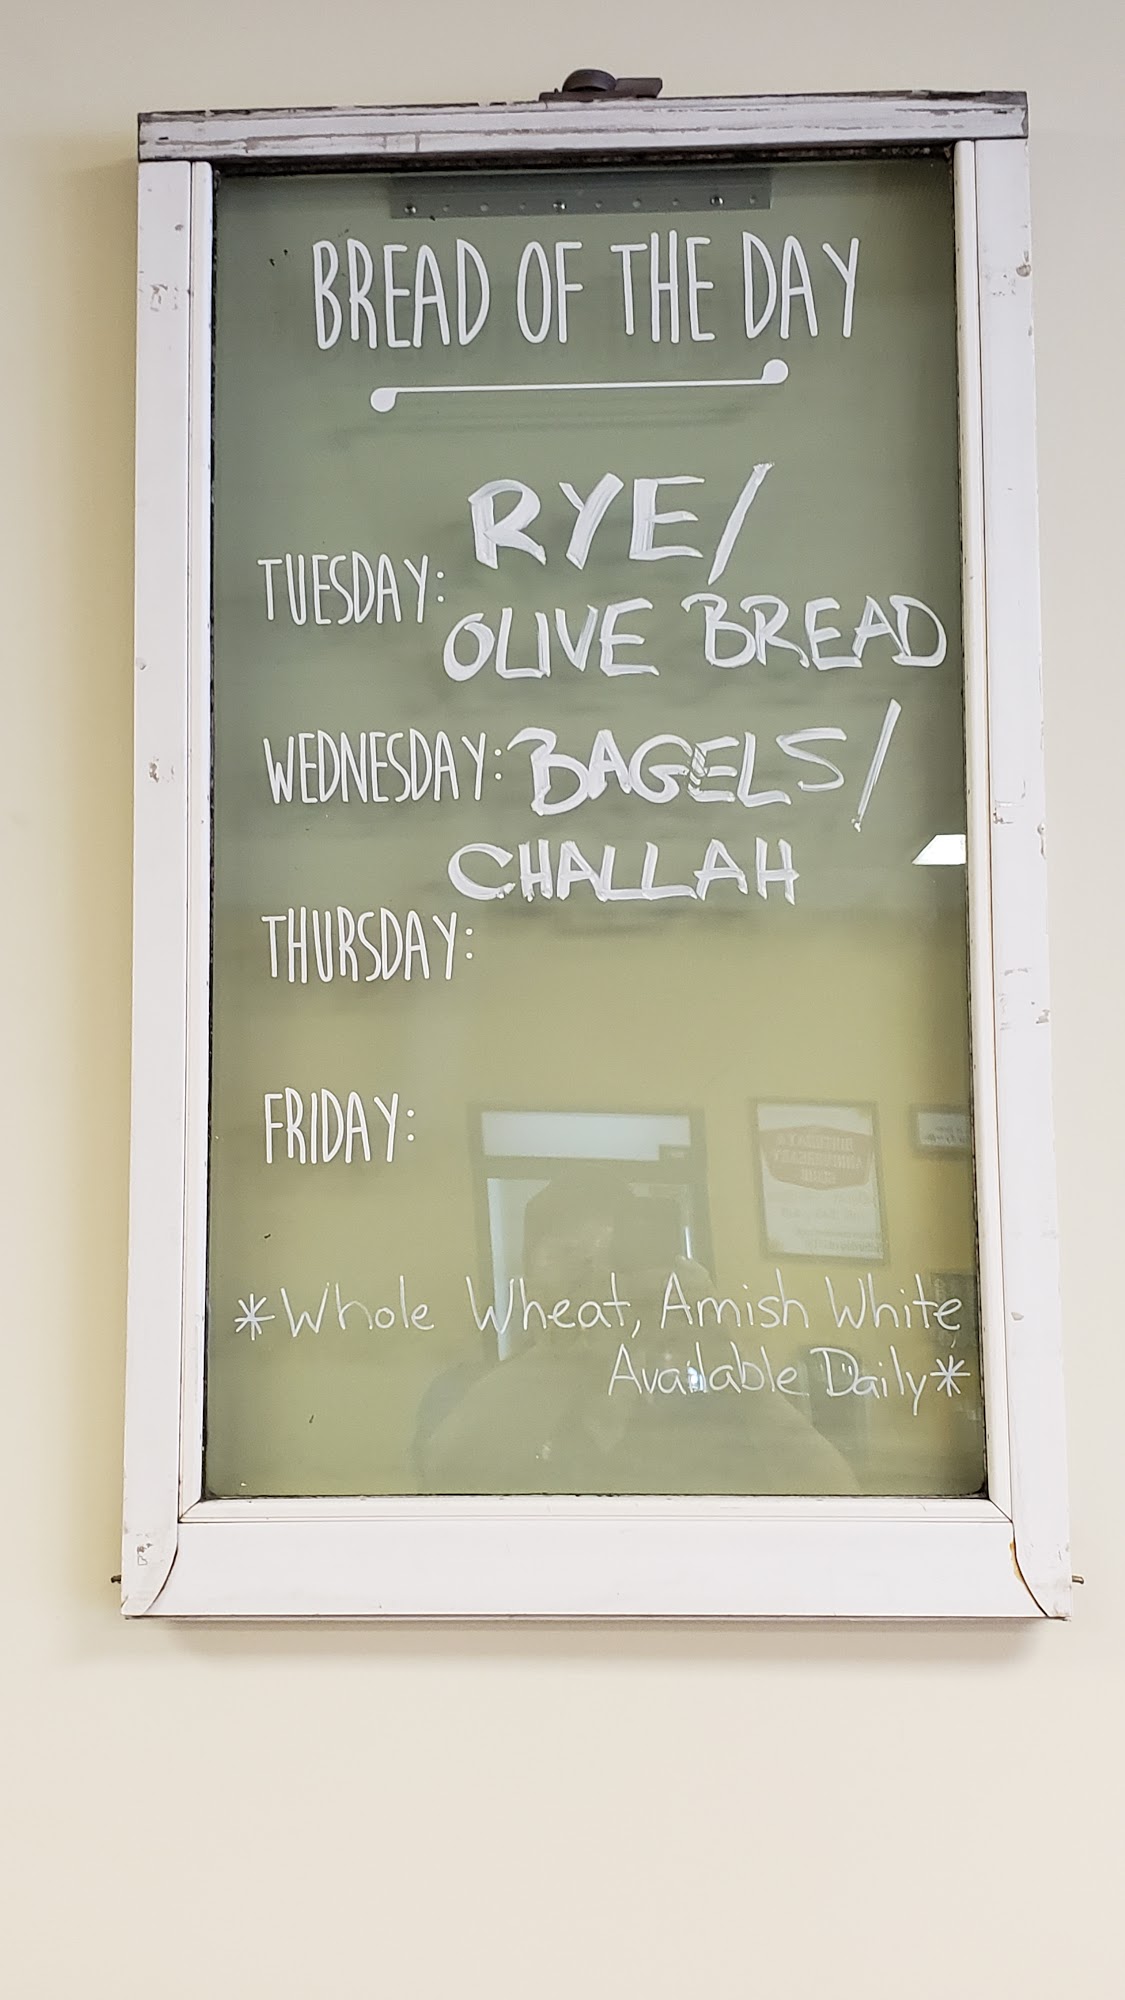 BREAD OF THE DAY
RYE/
TUESDAY:
OLIVE BREAD
WEDNESDAY: BAGELS/
CHALLAH
THURSDAY:
FRIDAY:
*Whole Wheat, Amish White
Available Daily*